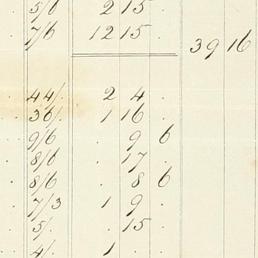 5/6 2 15 .
7/6 12 15 .
39 16
44/. 2 4 .
36/. 1 16 .
. 9/6 . 9 6
. 8/6 . 17 .
. 8/6 . 8 6
. 7/3 1 9 .
. 5/. . 15 .
. 4/. 1 . .